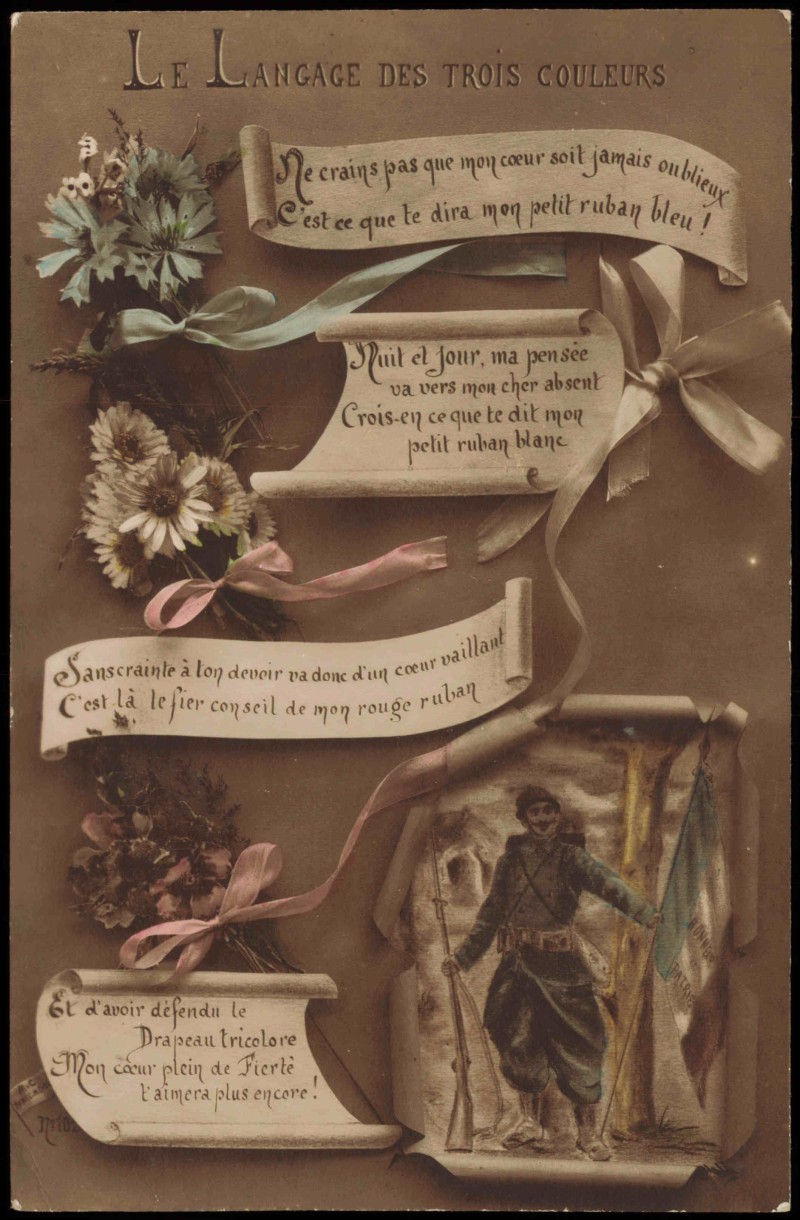 LE LANGAGE DES TROIS COULEURS
Ne crains pas que mon cœur soit jamais oublieux
C'est ce que te dira mon petit ruban bleu !
Nuit et Jour, ma pensée
va vers mon cher absent
Crois-en ce que te dit mon
petit ruban blanc
Sans crainte à ton devoir va donc d'un cœur vaillant
C'est là le fier conseil de mon rouge ruban
Et d'avoir défendu le
Drapeau tricolore
Mon cœur plein de Fierté
t'aimera plus encore !